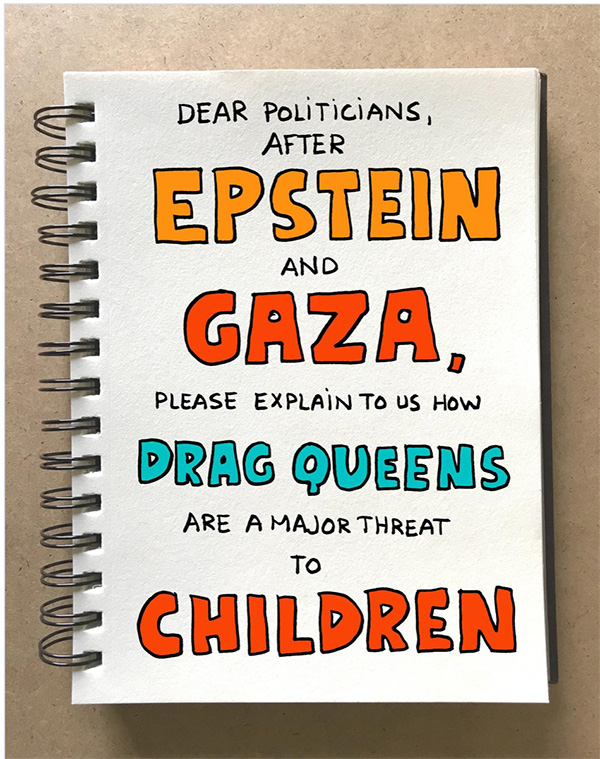 DEAR POLITICIANS,
AFTER
EPSTEIN
AND
GAZA,
PLEASE EXPLAIN TO US HOW
DRAG QUEENS
ARE A MAJOR THREAT
TO
CHILDREN